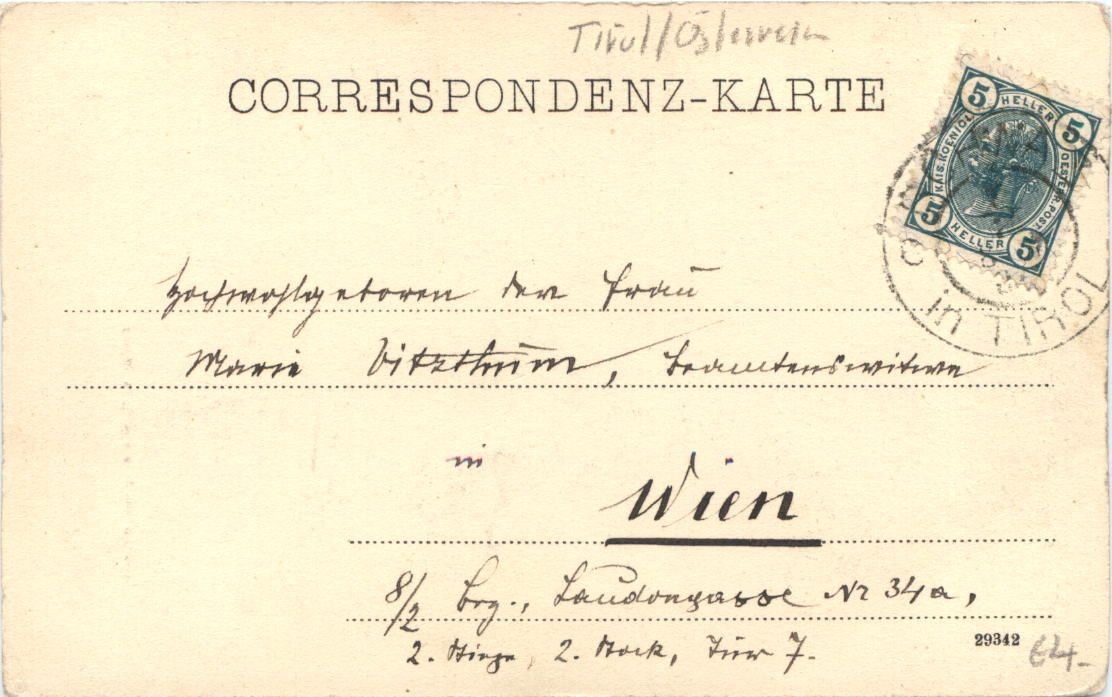 Tirol/Österreich
CORRESPONDENZ-KARTE
5 HELLER 5
KAIS. KOENIGL. OESTERR. POST
5 HELLER 5
in TIROL
Hochwohlgeboren der Frau
Marie Vitzthum, Beamtenswitwe
in
Wien
8/2 Bez., Laudongasse Nr 34a,
2. Stiege, 2. Stock, Tür 7.
29342